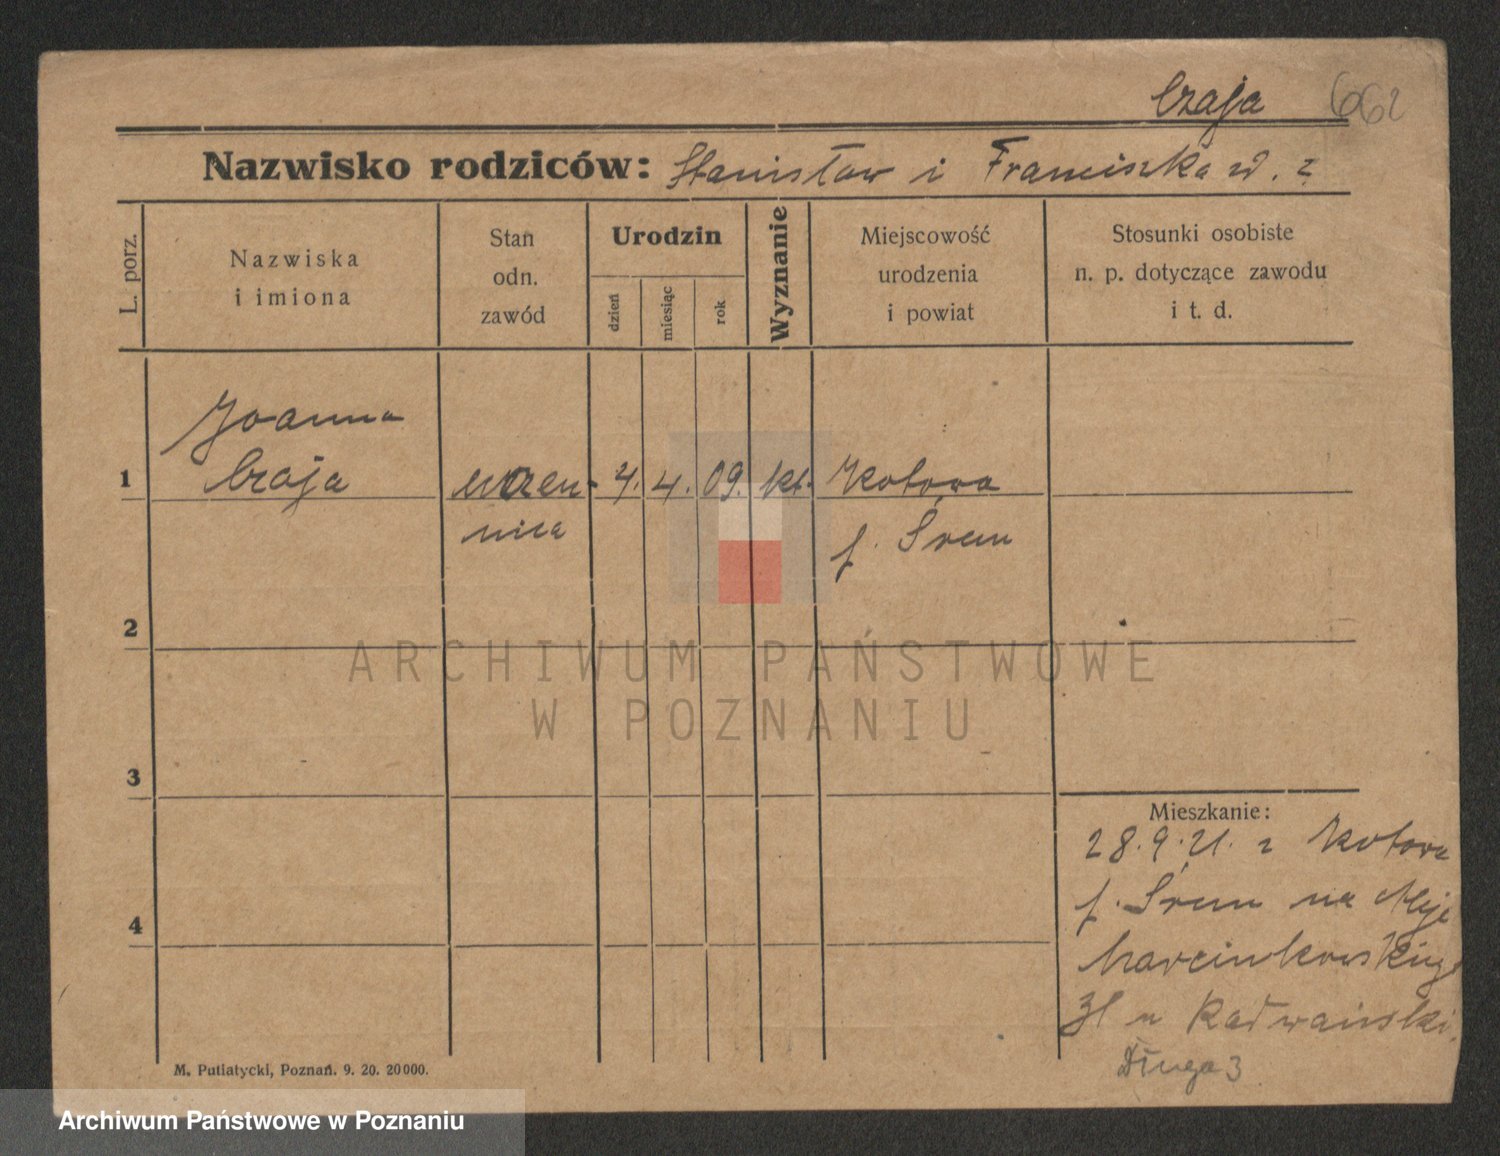 Czaja 662
Nazwisko rodziców: Stanisław i Franciszka zd. z
L. porz.
Nazwiska
i imiona
Stan
odn.
zawód
Urodzin
dzień
miesiąc
rok
Wyznanie
Miejscowość
urodzenia
i powiat
Stosunki osobiste
n. p. dotyczące zawodu
i t. d.
Joanna
1 Czaja uczen- 4. 4. 09. kt. Kotowa
nica p. Śrem
2
3
4
Mieszkanie:
28.9.21. z Kotowa
p. Śrem na Aleje
Marcinkowskiego
u Radwański
Długa 3
M. Putiatycki, Poznań. 9. 20. 20000.
ARCHIWUM PAŃSTWOWE
W POZNANIU
Archiwum Państwowe w Poznaniu